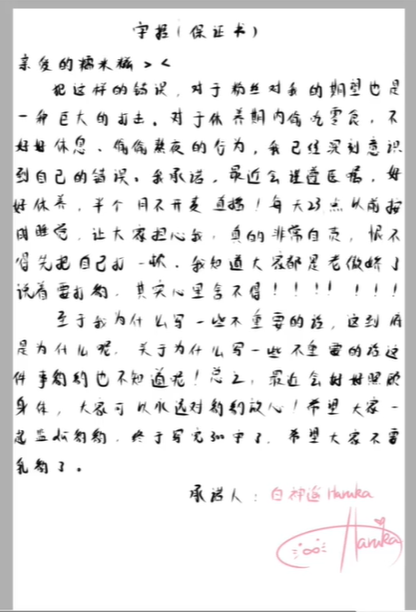 字报(保证书)
亲爱的糯米糍> <
犯这样的错误,对于粉丝对我的期望也是
一种巨大的打击。对于休养期内偷吃零食,不
好好休息、偷偷熬夜的行为,我已经深刻意识
到自己的错误。我承诺,最近会遵医嘱,好
好休养,半个月不开麦直播!每天23点以前按
时睡觉,让大家担心我,真的非常自责,恨不
得先把自己打一顿。我知道大家都是老傲娇了
说着要打豹,其实心里舍不得!!!!!!!
至于我为什么写一些不重要的话,这到底
是为什么呢,关于为什么写一些不重要的话这
件事豹豹也不知道花!总之,最近会好好照顾
身体,大家可以永远对豹豹放心!希望大家一
起监督豹豹,终于写完300字了,希望大家不要
乱豹了。
承诺人:白神遥Haruka
Haruka